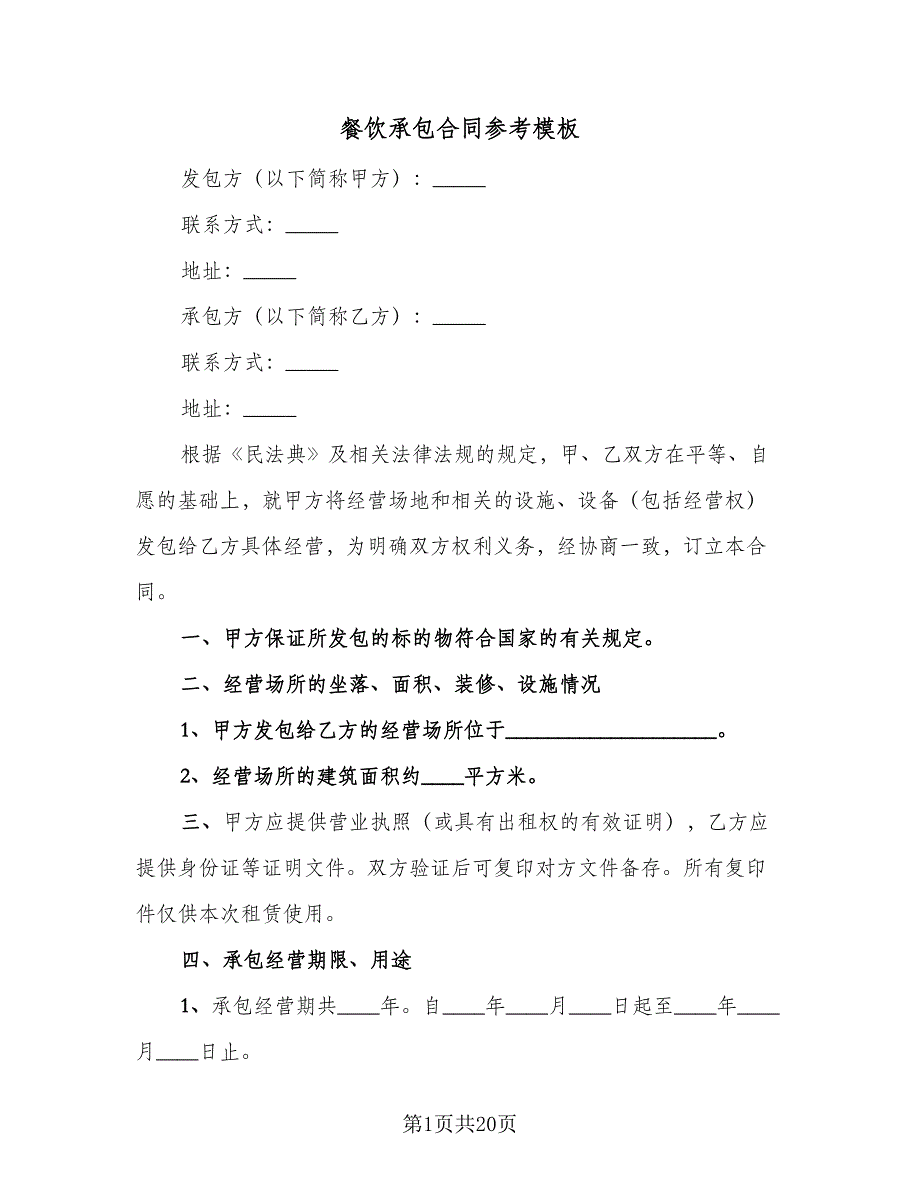 餐饮承包合同参考模板
发包方（以下简称甲方）：_____
联系方式：_____
地址：_____
承包方（以下简称乙方）：_____
联系方式：_____
地址：_____
根据《民法典》及相关法律法规的规定，甲、乙双方在平等、自
愿的基础上，就甲方将经营场地和相关的设施、设备（包括经营权）
发包给乙方具体经营，为明确双方权利义务，经协商一致，订立本合
同。
一、甲方保证所发包的标的物符合国家的有关规定。
二、经营场所的坐落、面积、装修、设施情况
1、甲方发包给乙方的经营场所位于____________________。
2、经营场所的建筑面积约____平方米。
三、甲方应提供营业执照（或具有出租权的有效证明），乙方应
提供身份证等证明文件。双方验证后可复印对方文件备存。所有复印
件仅供本次租赁使用。
四、承包经营期限、用途
1、承包经营期共____年。自____年____月____日起至____年____
月____日止。
第1页共20页